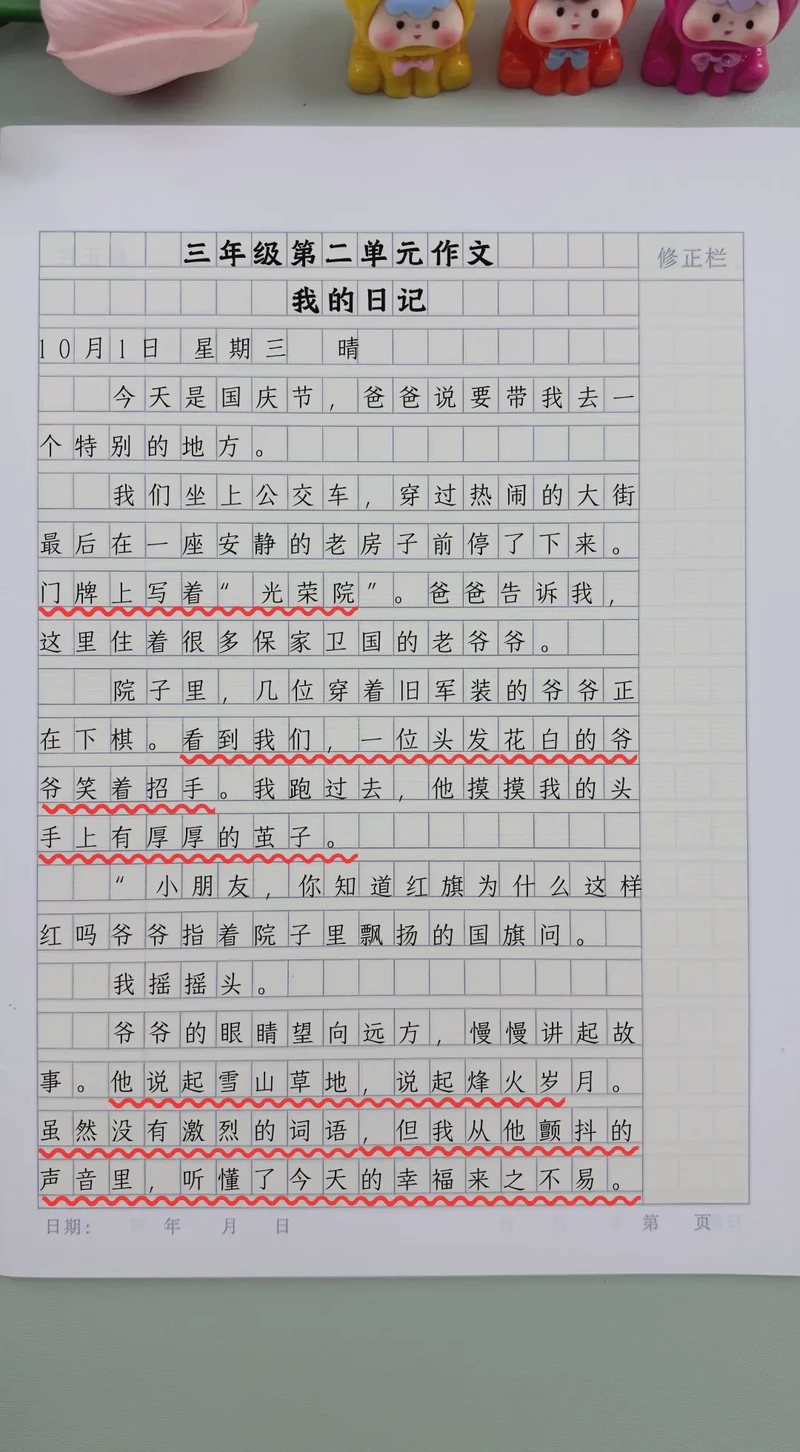 三年级第二单元作文
修正栏
我的日记
10月1日 星期三 晴
今天是国庆节，爸爸说要带我去一
个特别的地方。
我们坐上公交车，穿过热闹的大街
最后在一座安静的老房子前停了下来。
门牌上写着“光荣院”。爸爸告诉我，
这里住着很多保家卫国的老爷爷。
院子里，几位穿着旧军装的爷爷正
在下棋。看到我们，一位头发花白的爷
爷笑着招手。我跑过去，他摸摸我的头
手上有厚厚的茧子。
“小朋友，你知道红旗为什么这样
红吗爷爷指着院子里飘扬的国旗问。
我摇摇头。
爷爷的眼睛望向远方，慢慢讲起故
事。他说起雪山草地，说起烽火岁月。
虽然没有激烈的词语，但我从他颤抖的
声音里，听懂了今天的幸福来之不易。
日期： 年 月 日 第 页